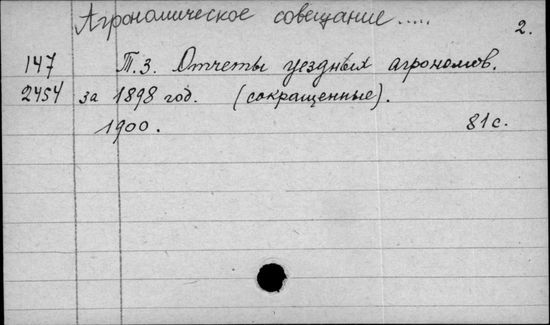 Агрономическое совещание.....
2.
147 Т.3. Отчеты уездных агрономов.
2454 за 1898 год. (сокращенные).
1900. 81с.